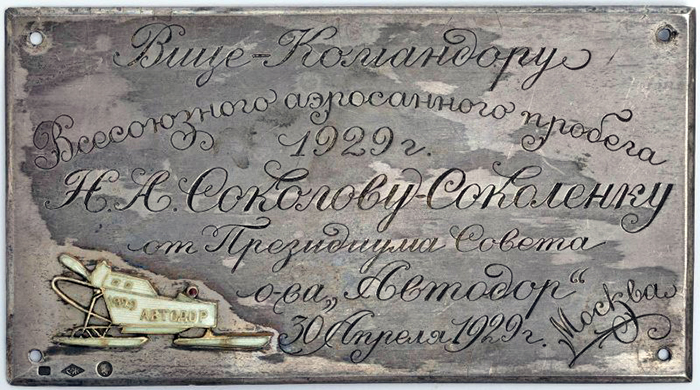 Вице-Командору
Всесоюзного аэросанного пробега
1929 г.
Н. А. Соколову-Соколенку
от Президиума Совета
о-ва „Автодор“
30 Апреля 1929 г. Москва
АВТОДОР